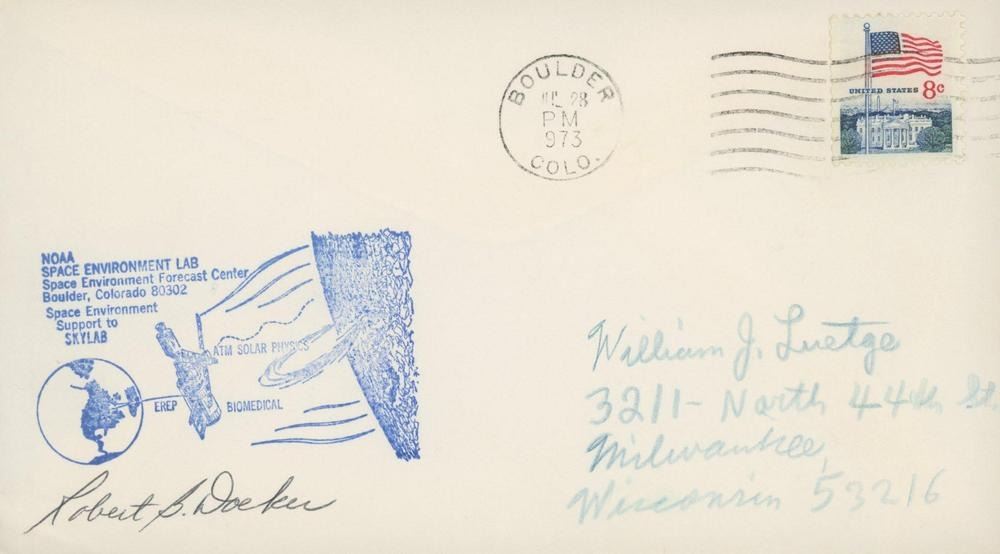 BOULDER
JUL 28
PM
973
COLO.
UNITED STATES 8c
NOAA
SPACE ENVIRONMENT LAB
Space Environment Forecast Center
Boulder, Colorado 80302
Space Environment
Support to
SKYLAB
ATM SOLAR PHYSICS
EREP BIOMEDICAL
Robert B. Doeker
William J. Luetge
3211- North 44th St.
Milwaukee,
Wisconsin 53216